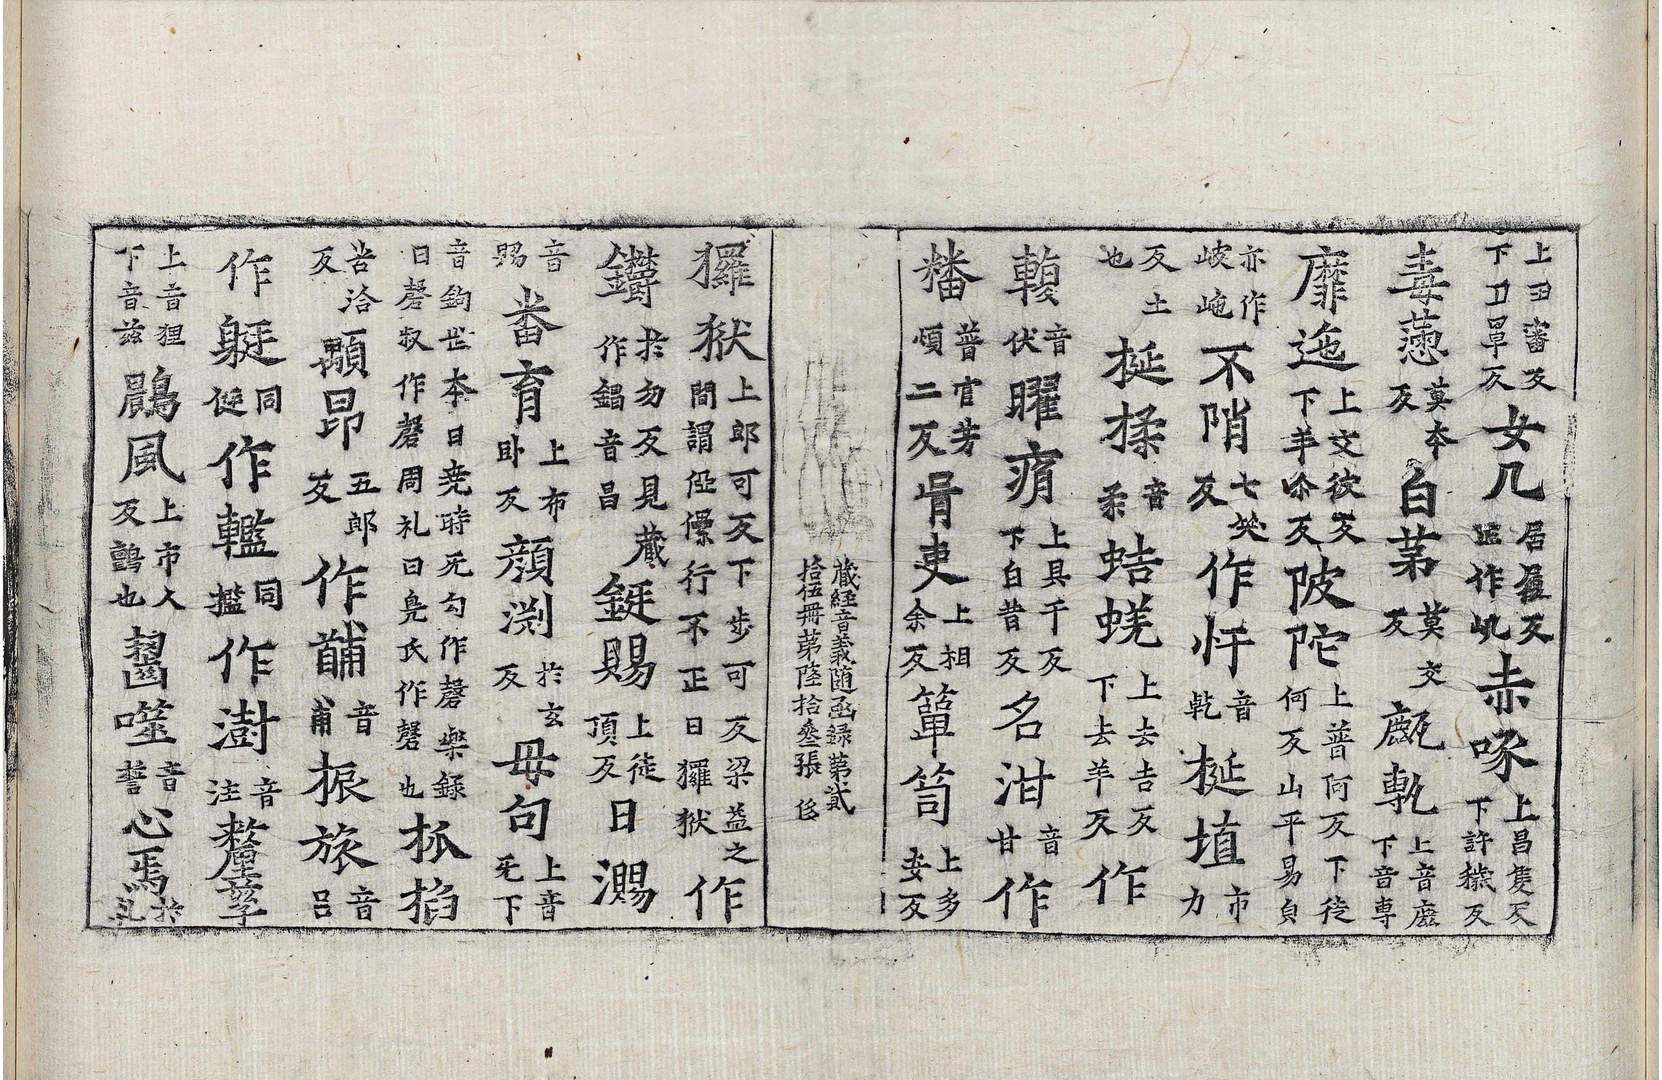 上丑審反下卩單反女几居履反正作屼赤啄上昌隻反下許穢反
毒蔥莫本反白茅莫交反甗𠧩上音鹿下音專
靡迤上文彼反下羊尒反陂陀上普何反下徒何反山平易皃
亦作岐崺不陗七笑反作忓音乾梃埴市力
反土也梴揉音柔蛣蜣上去吉反下去羊反作
輹音伏曜痟上具千反下白昔反名泔音甘作
䊩普官芳煩二反胥吏上相余反簞笥上多安反
藏經音義隨函録第貳
拾伍冊第陸拾叄張 俊
玀狱上郎可反下步可反梁益之間謂俹𠎝行不正曰玀狱作
鑽於勿反見藏作錩音昌鋌賜上徒頂反日㵮
音賜畨育上布卧反顔渕於玄反毋句上音无下
音鉤世本曰堯時无勾作磬樂録曰磬叔作磬周礼曰凫氏作磬也抓掐
苦洽反顒昂五郎反作黼音甫振旅音呂
作艇同侹作轞同檻作澍音注𨤲孳
上音狸下音兹鷐風上市人反鸇也齧噬音誓心焉於乹